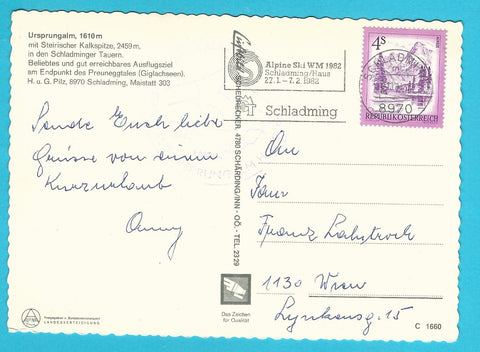 Ursprungalm, 1610 m
mit Steirischer Kalkspitze, 2459 m,
in den Schladminger Tauern.
Beliebtes und gut erreichbares Ausflugsziel
am Endpunkt des Preuneggtales (Giglachseen).
H. u. G. Pilz, 8970 Schladming, Maistatt 303
Sende Euch liebe
Grüsse von einem
Kurzurlaub
SCHÄRDING/INN - OÖ. - TEL. 2329
Alpine Ski WM 1982
Schladming/Haus
27.1. - 7.2. 1982
Schladming
SCHLADMING
8970
4S
REPUBLIK ÖSTERREICH
An
Franz
1130 Wien
15
Das Zeichen
für Qualität
LANDESVERTEIDIGUNG
C 1660